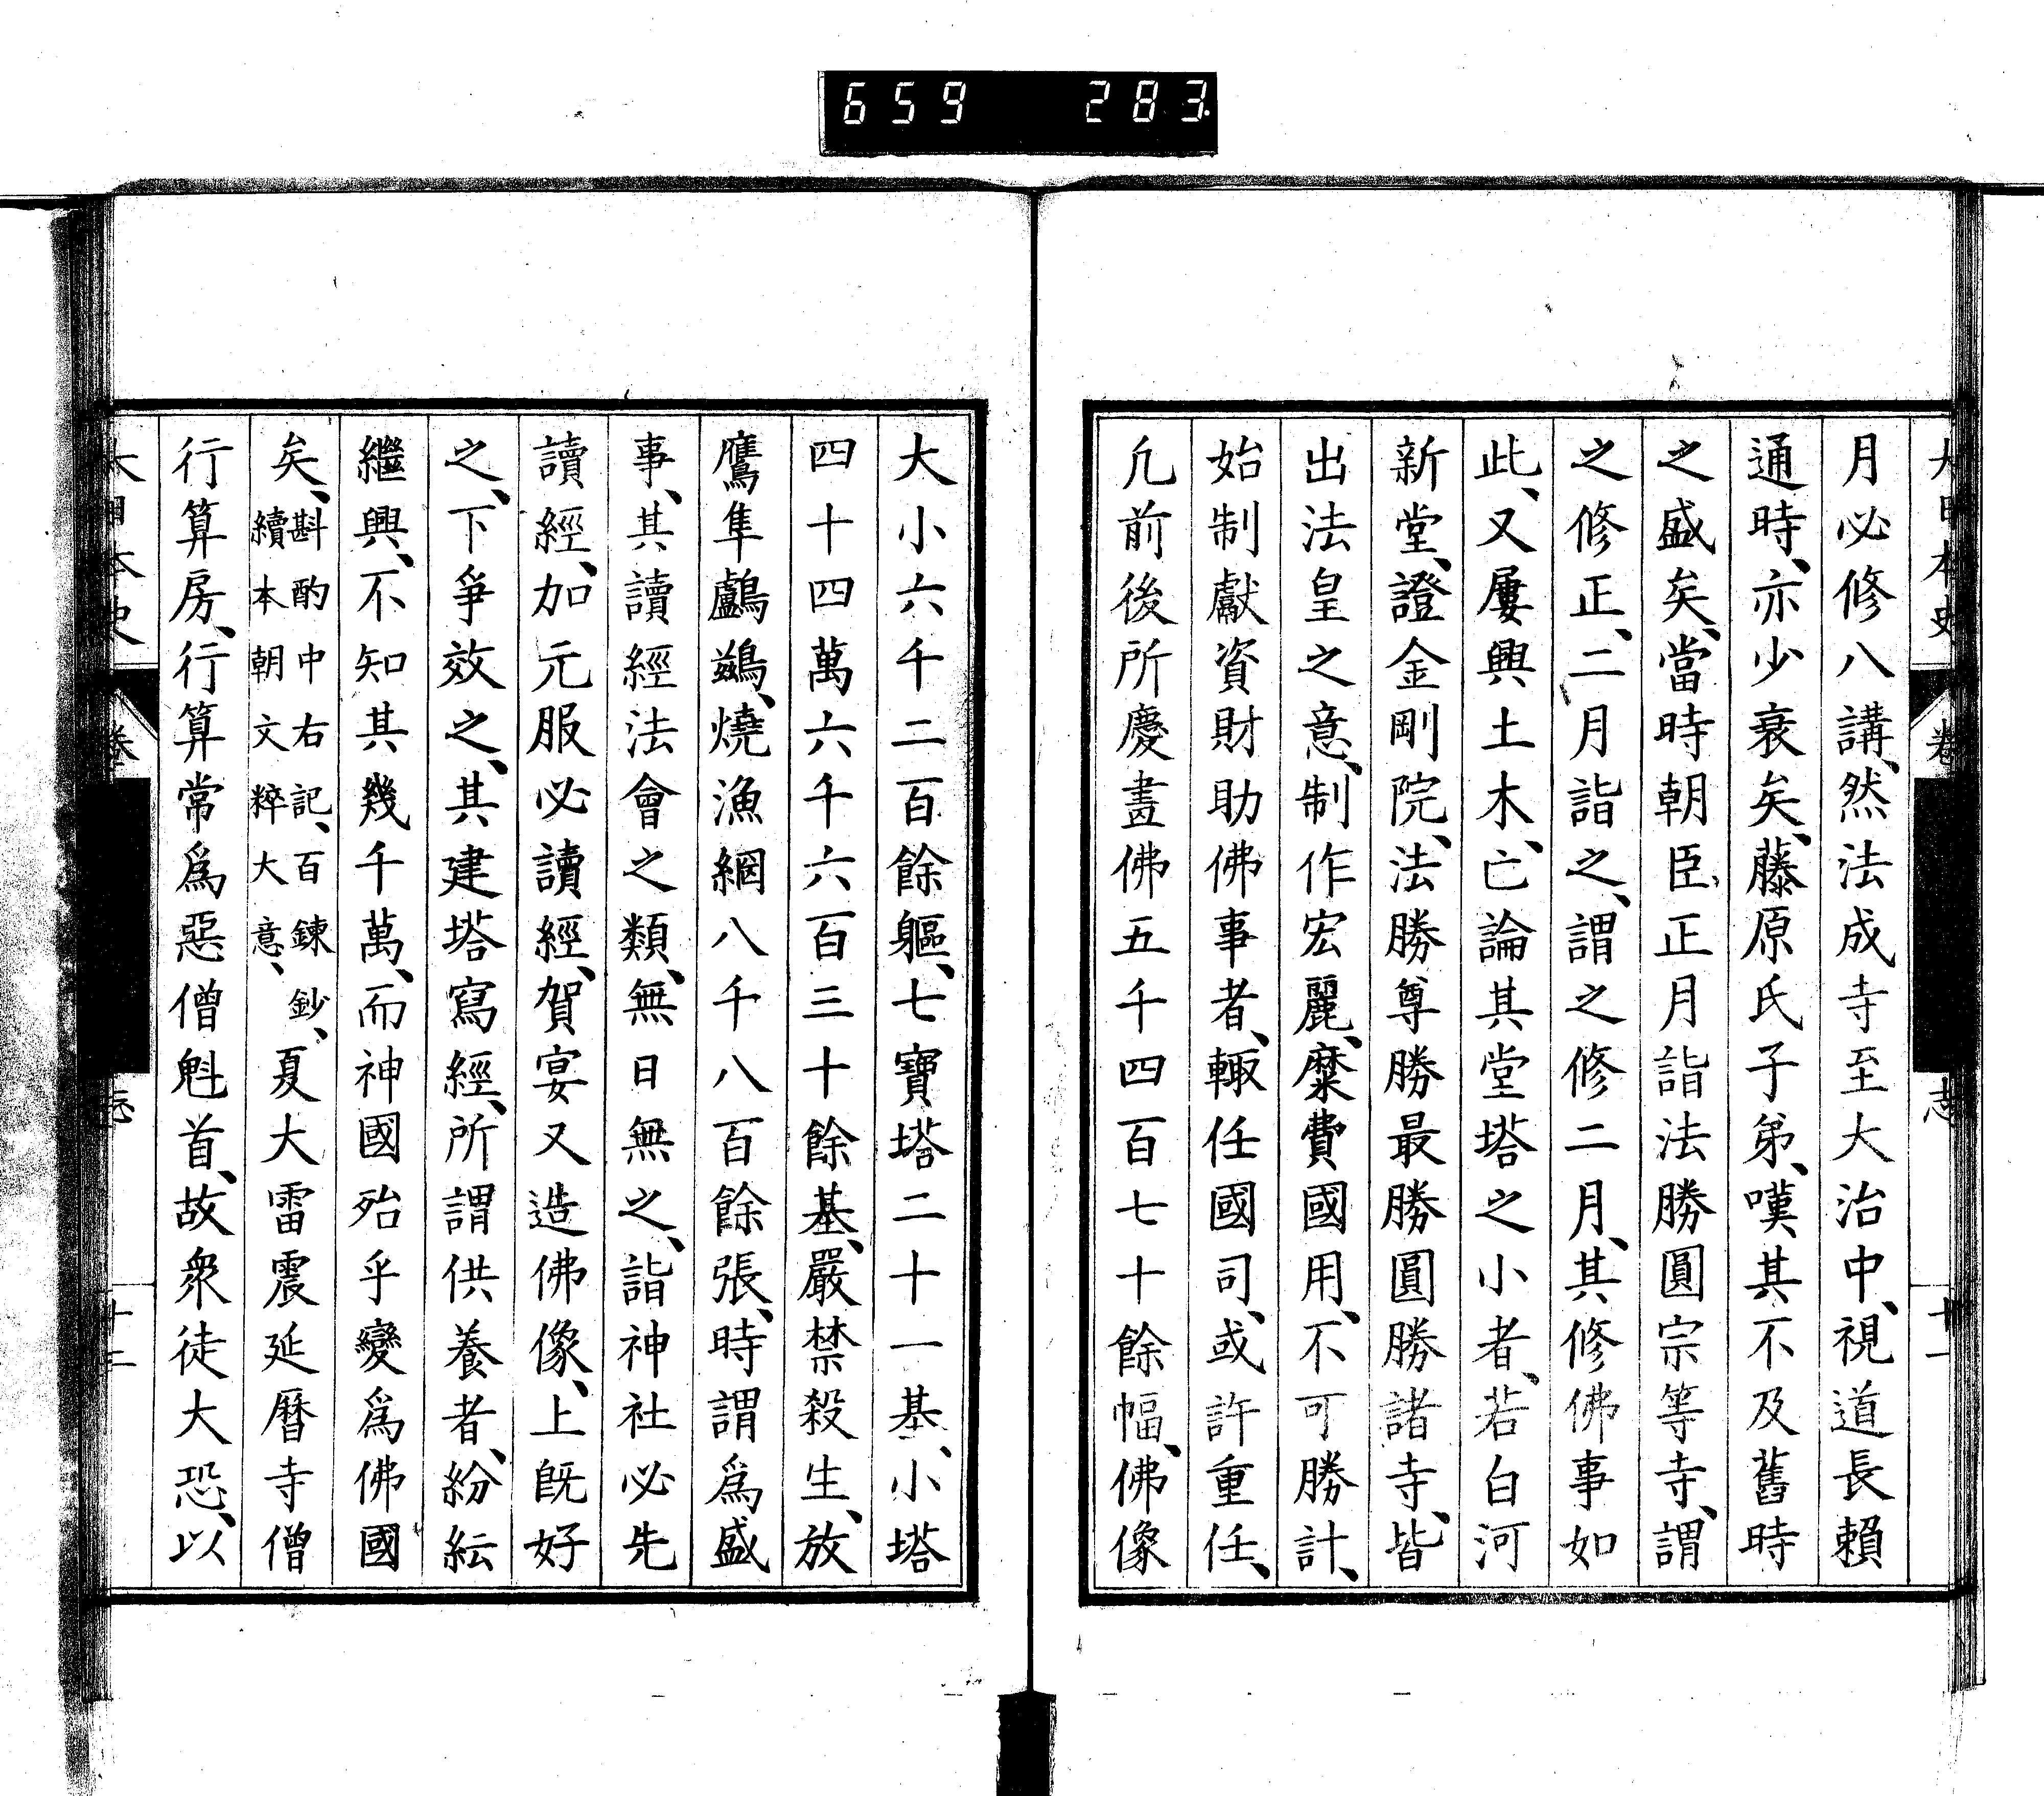 659 283
大日本史 卷 志 十一
月必修八講、然法成寺至大治中、視道長賴
通時、亦少衰矣、藤原氏子弟、嘆其不及舊時
之盛矣、當時朝臣、正月詣法勝圓宗等寺、謂
之修正、二月詣之、謂之修二月、其修佛事如
此、又屢興土木、亡論其堂塔之小者、若白河
新堂、證金剛院、法勝尊勝最勝圓勝諸寺、皆
出法皇之意、制作宏麗、糜費國用、不可勝計、
始制獻資財助佛事者、輙任國司、或許重任、
凢前後所慶畫佛五千四百七十餘幅、佛像
大小六千二百餘軀、七寶塔二十一基、小塔
四十四萬六千六百三十餘基、嚴禁殺生、放
鷹隼鸕鷀、燒漁網八千八百餘張、時謂爲盛
事、其讀經法會之類、無日無之、詣神社必先
讀經、加元服必讀經、賀宴又造佛像、上旣好
之、下爭效之、其建塔寫經、所謂供養者、紛紜
繼興、不知其幾千萬、而神國殆乎變爲佛國
矣、斟酌中右記、百鍊鈔、續本朝文粹大意、夏大雷震延曆寺僧
行算房、行算常爲惡僧魁首、故衆徒大恐、以
大日本史 卷 志 十二